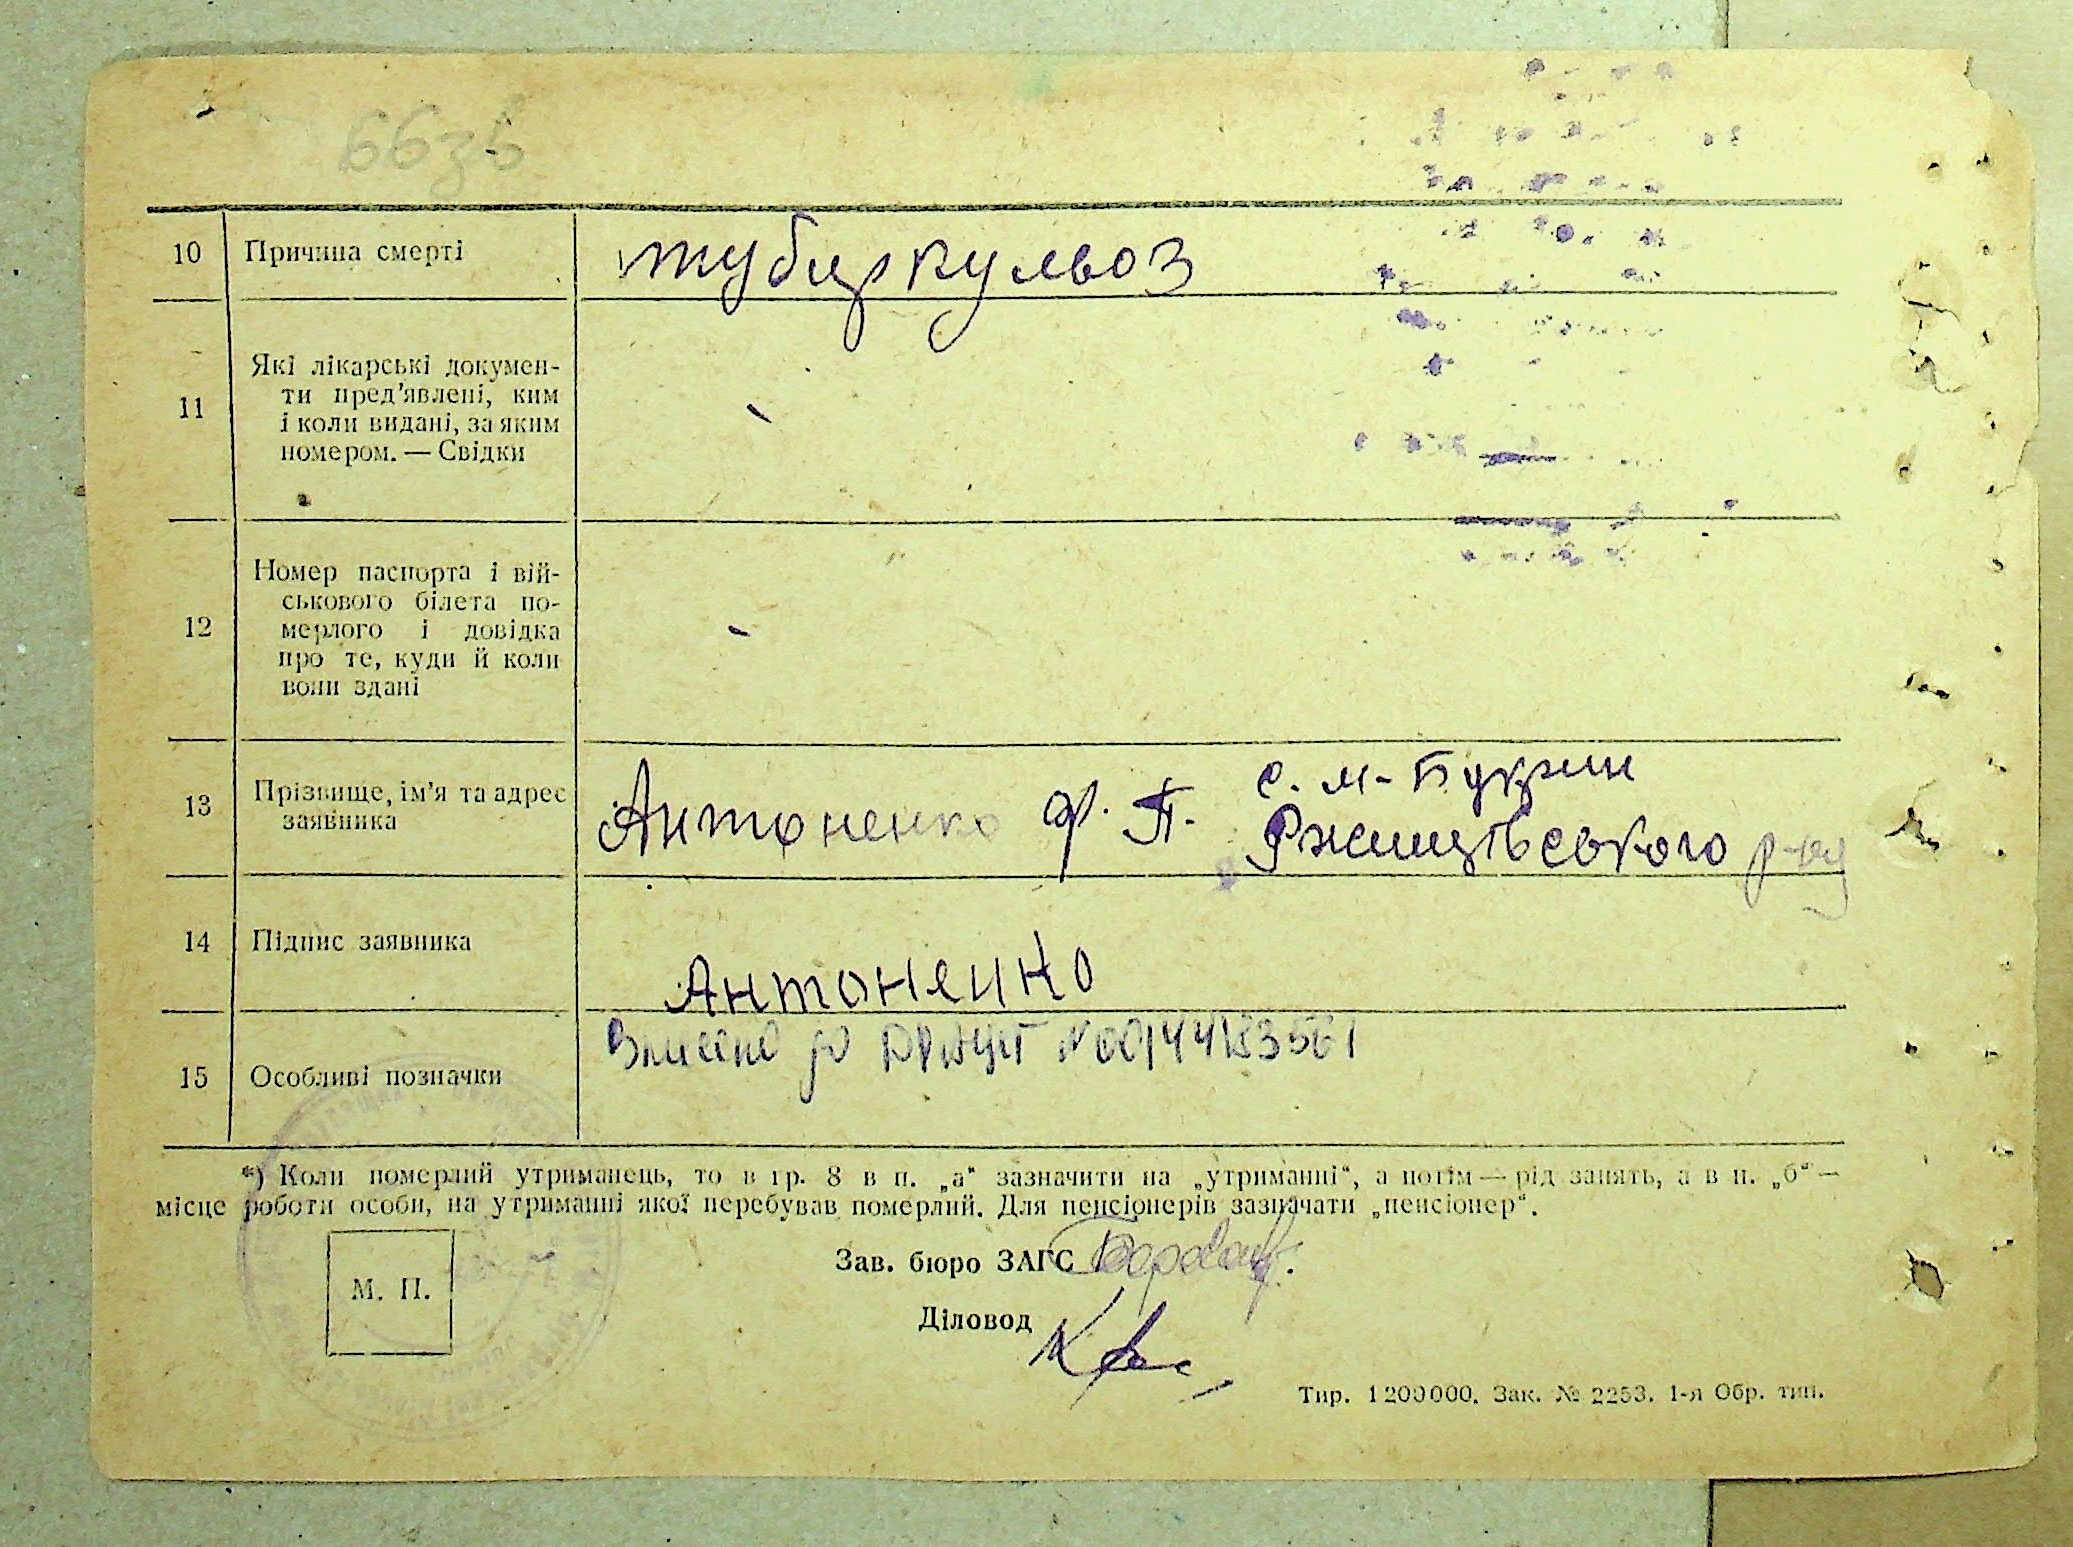 66зв
10 Причина смерті тубиркульоз
11 Які лікарські докумен-
ти пред'явлені, ким
і коли видані, за яким
номером. — Свідки
12 Номер паспорта і вій-
ськового білета по-
мерлого і довідка
про те, куди й коли
вони здані
с. М-Букрин
13 Прізвище, ім'я та адрес Антоненко Ф. П. Ржищівського р-ну
заявника
14 Підпис заявника Антоненко
Внесено до ДРАЦСГ №00144183561
15 Особливі позначки
*) Коли померлий утриманець, то в гр. 8 в п. „а“ зазначити на „утриманні“, а потім — рід занять, а в п. „б“ —
місце роботи особи, на утриманні якої перебував померлий. Для пенсіонерів зазначати „пенсіонер“.
Зав. бюро ЗАГС
М. П.
Діловод
Тир. 1200000. Зак. № 2253. 1-я Обр. тип.